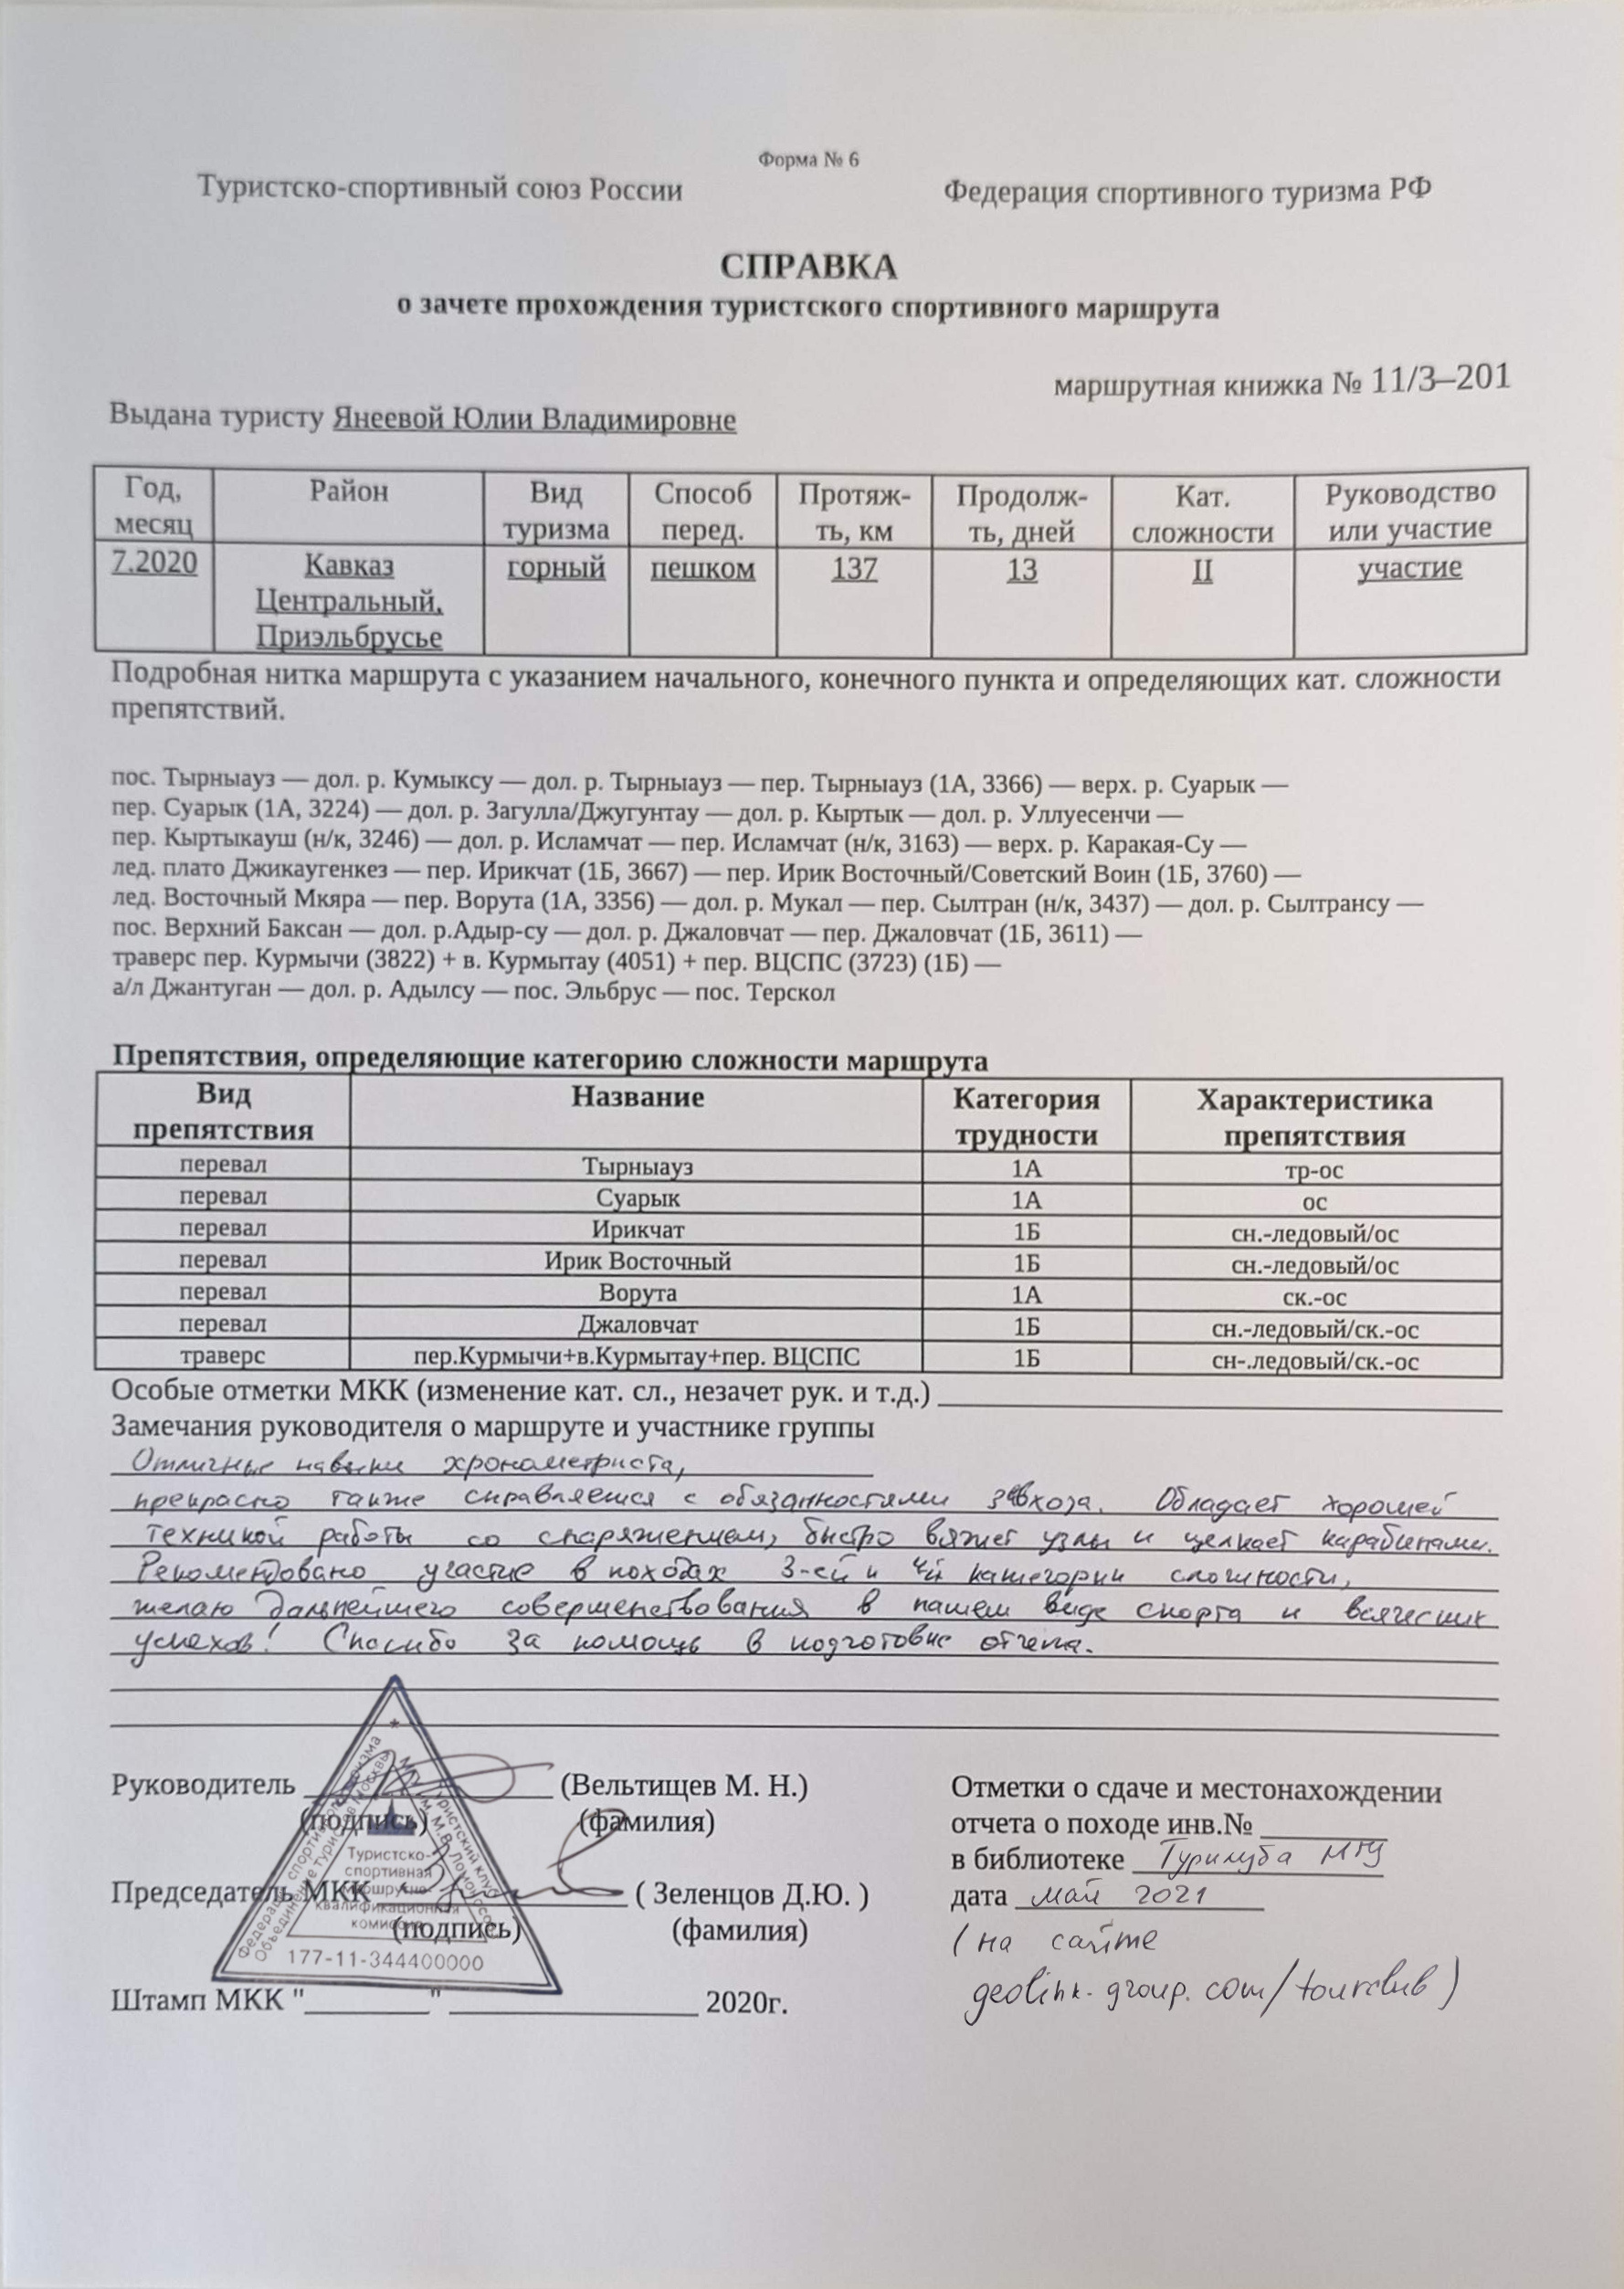 Форма № 6
Туристско-спортивный союз России Федерация спортивного туризма РФ
СПРАВКА
о зачете прохождения туристского спортивного маршрута
маршрутная книжка № 11/3–201
Выдана туристу Янеевой Юлии Владимировне
Год, месяц Район Вид туризма Способ перед. Протяж-ть, км Продолж-ть, дней Кат. сложности Руководство или участие
7.2020 Кавказ Центральный, Приэльбрусье горный пешком 137 13 II участие
Подробная нитка маршрута с указанием начального, конечного пункта и определяющих кат. сложности
препятствий.
пос. Тырныауз — дол. р. Кумыксу — дол. р. Тырныауз — пер. Тырныауз (1А, 3366) — верх. р. Суарык —
пер. Суарык (1А, 3224) — дол. р. Загулла/Джугунтау — дол. р. Кыртык — дол. р. Уллуесенчи —
пер. Кыртыкауш (н/к, 3246) — дол. р. Исламчат — пер. Исламчат (н/к, 3163) — верх. р. Каракая-Су —
лед. плато Джикаугенкез — пер. Ирикчат (1Б, 3667) — пер. Ирик Восточный/Советский Воин (1Б, 3760) —
лед. Восточный Мкяра — пер. Ворута (1А, 3356) — дол. р. Мукал — пер. Сылтран (н/к, 3437) — дол. р. Сылтрансу —
пос. Верхний Баксан — дол. р.Адыр-су — дол. р. Джаловчат — пер. Джаловчат (1Б, 3611) —
траверс пер. Курмычи (3822) + в. Курмытау (4051) + пер. ВЦСПС (3723) (1Б) —
а/л Джантуган — дол. р. Адылсу — пос. Эльбрус — пос. Терскол
Препятствия, определяющие категорию сложности маршрута
Вид препятствия Название Категория трудности Характеристика препятствия
перевал Тырныауз 1А тр-ос
перевал Суарык 1А ос
перевал Ирикчат 1Б сн.-ледовый/ос
перевал Ирик Восточный 1Б сн.-ледовый/ос
перевал Ворута 1А ск.-ос
перевал Джаловчат 1Б сн.-ледовый/ск.-ос
траверс пер.Курмычи+в.Курмытау+пер. ВЦСПС 1Б сн-.ледовый/ск.-ос
Особые отметки МКК (изменение кат. сл., незачет рук. и т.д.)
Замечания руководителя о маршруте и участнике группы
Отличные навыки хронометриста,
прекрасно также справляется с обязанностями завхоза. Обладает хорошей
техникой работы со снаряжением, быстро вяжет узлы и щелкает карабинами.
Рекомендовано участие в походах 3-ей и 4й категории сложности,
желаю дальнейшего совершенствования в нашем виде спорта и всяческих
успехов! Спасибо за помощь в подготовке отчета.
Руководитель (Вельтищев М. Н.)
(подпись) (фамилия)
Председатель МКК ( Зеленцов Д.Ю. )
(подпись) (фамилия)
Штамп МКК "________" ________________ 2020г.
Отметки о сдаче и местонахождении
отчета о походе инв.№
в библиотеке Турклуба МГУ
дата май 2021
(на сайте
geolink-group.com/tourclub)
Туристско-
спортивная
маршрутно-
квалификационная
комиссия
177-11-344400000